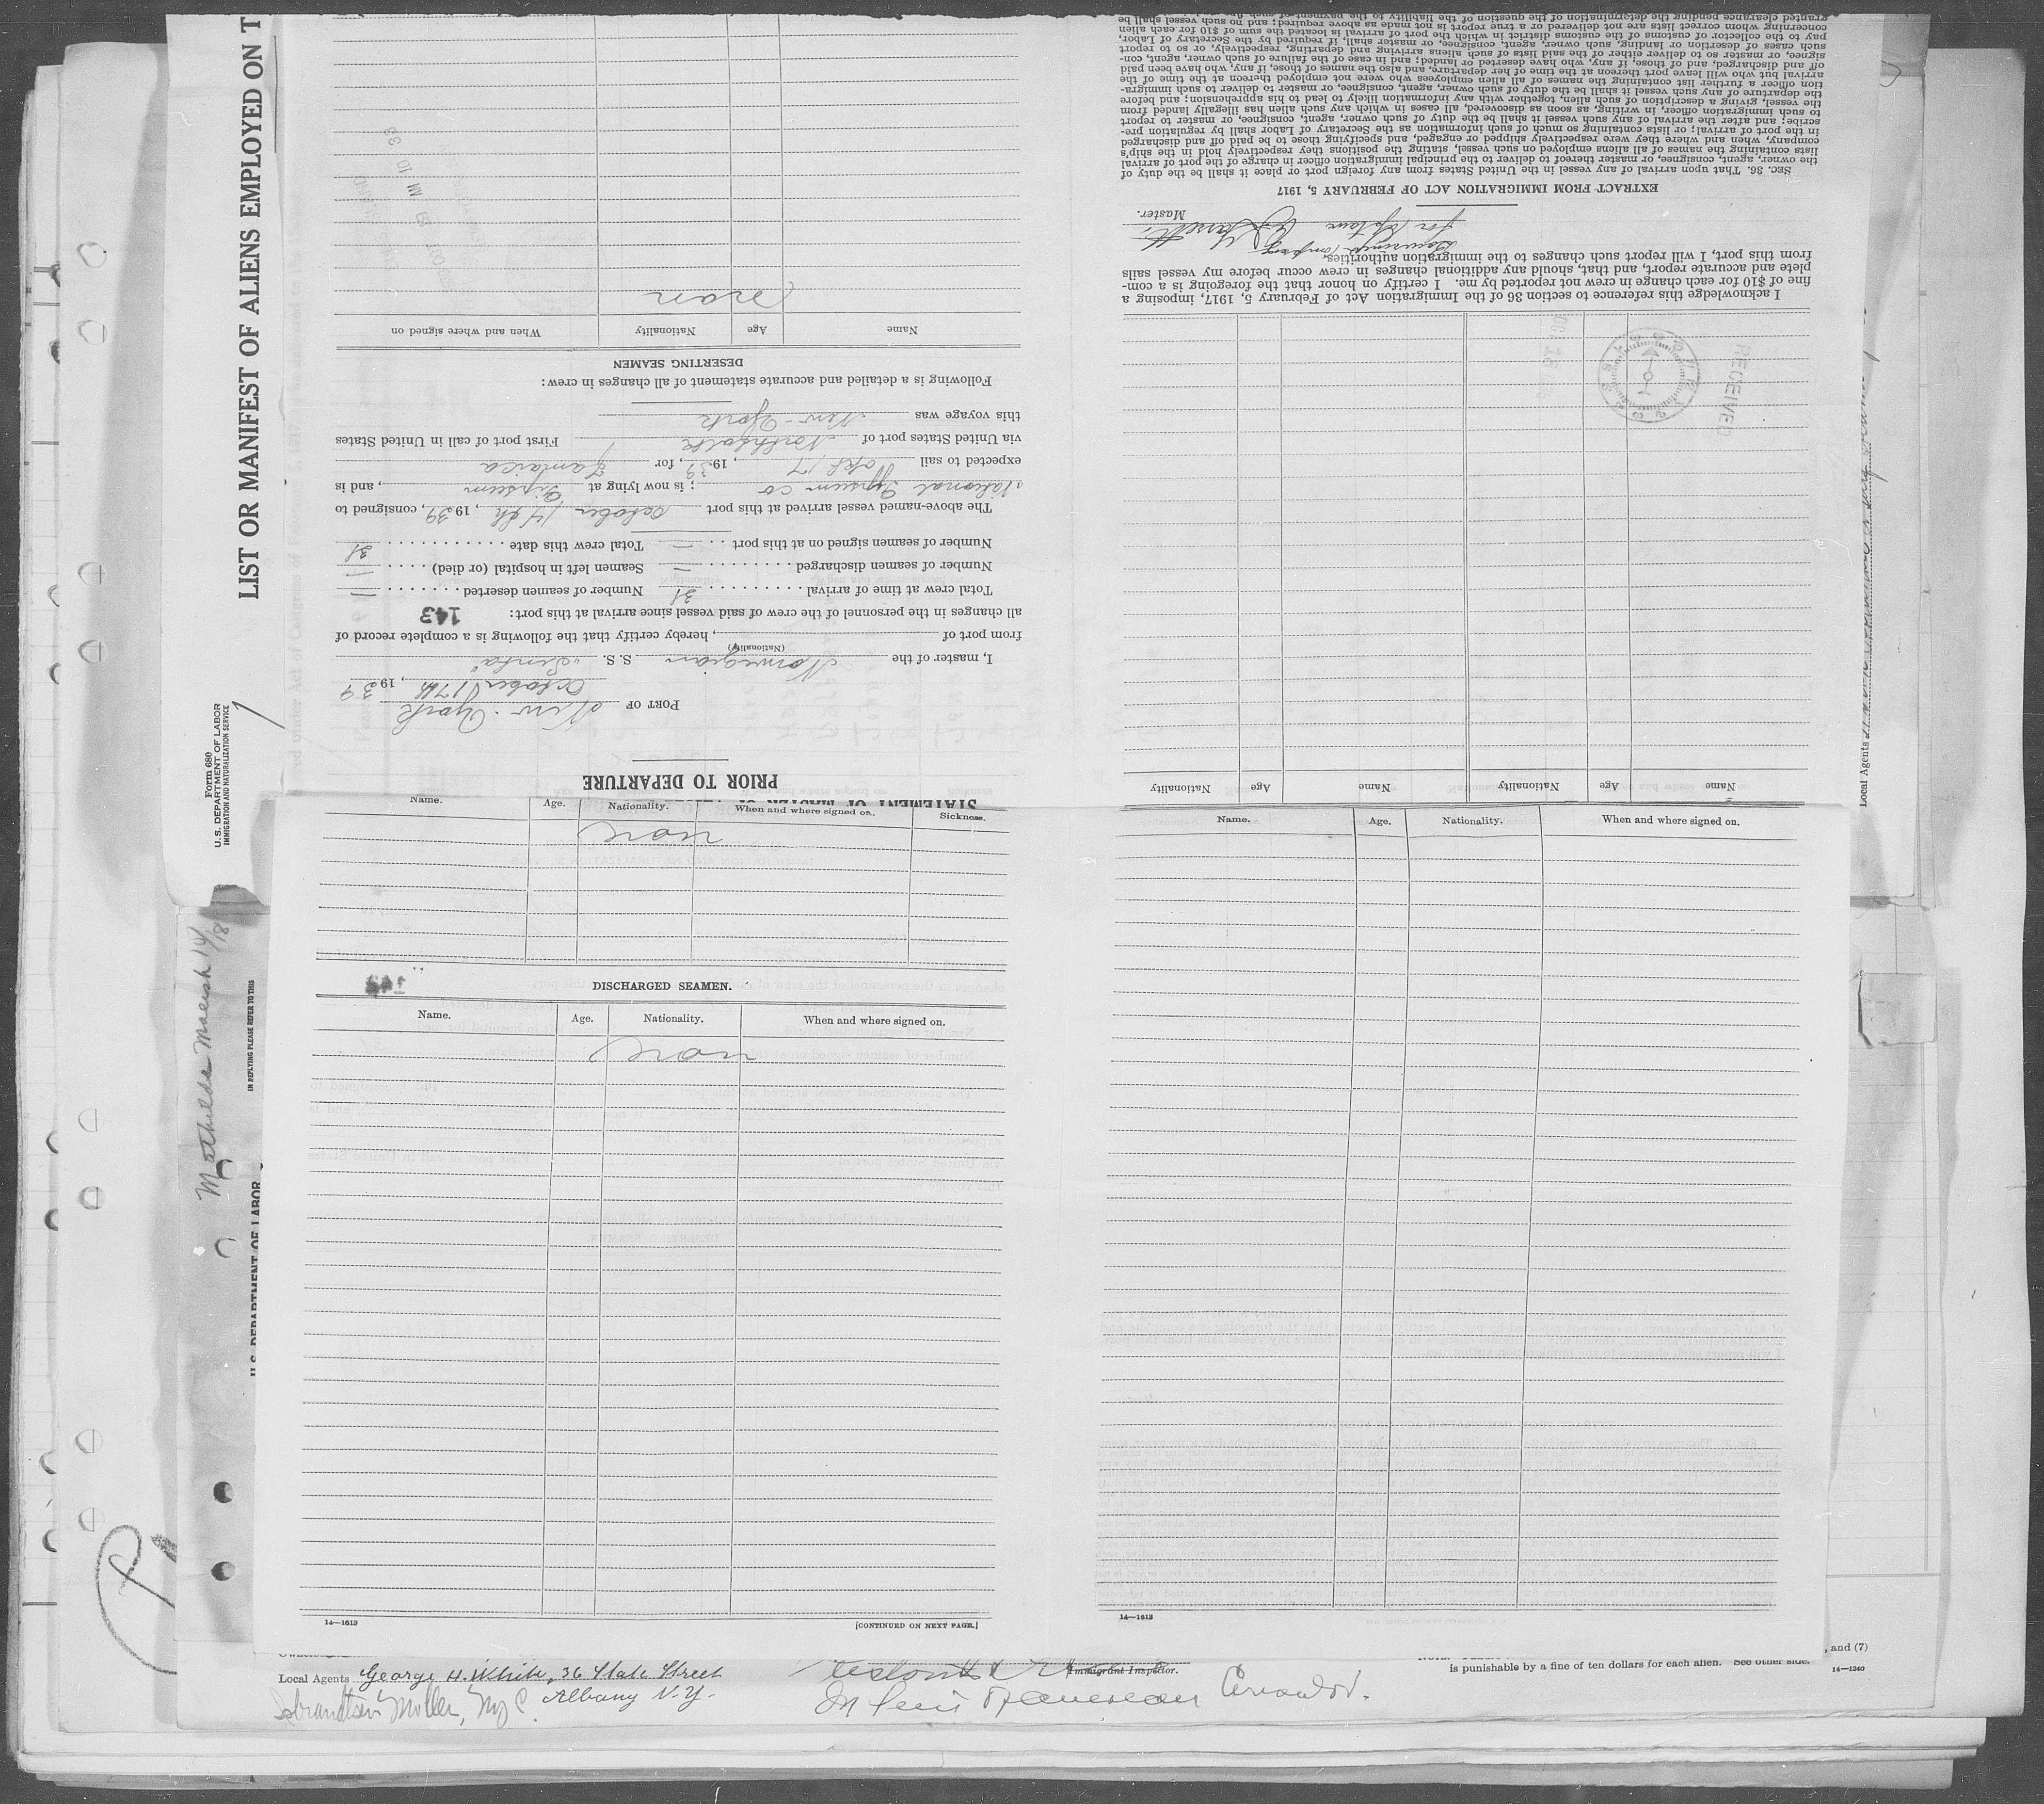 LIST OR MANIFEST OF ALIENS EMPLOYED ON T
Form 680
U.S. DEPARTMENT OF LABOR
IMMIGRATION AND NATURALIZATION SERVICE
PRIOR TO DEPARTURE
PORT OF New-York
October 17th, 1939
I, master of the Norwegian S. S.
(Nationality)
from port of , hereby certify that the following is a complete record of
all changes in the personnel of the crew of said vessel since arrival at this port:
143
Total crew at time of arrival 31 Number of seamen deserted —
Number of seamen discharged — Seamen left in hospital (or died) —
Number of seamen signed on at this port — Total crew this date 31
The above-named vessel arrived at this port October 14th, 1939, consigned to
National Gypsum Co; is now lying at , and is
expected to sail Okt. 17, 1939, for Jamaica
via United States port of First port of call in United States
this voyage was New-York
Following is a detailed and accurate statement of all changes in crew:
DESERTING SEAMEN
Name Age Nationality When and where signed on
Name Age Nationality Name Age Nationality
RECEIVED
I acknowledge this reference to section 36 of the Immigration Act of February 5, 1917, imposing a
fine of $10 for each change in crew not reported by me. I certify on honor that the foregoing is a com-
plete and accurate report, and that, should any additional changes in crew occur before my vessel sails
from this port, I will report such changes to the immigration authorities.
Master.
EXTRACT FROM IMMIGRATION ACT OF FEBRUARY 5, 1917
SEC. 36. That upon arrival of any vessel in the United States from any foreign port or place it shall be the duty of
the owner, agent, consignee, or master thereof to deliver to the principal immigration officer in charge of the port of arrival
lists containing the names of all aliens employed on such vessel, stating the positions they respectively hold in the ship's
company, when and where they were respectively shipped or engaged, and specifying those to be paid off and discharged
in the port of arrival; or lists containing so much of such information as the Secretary of Labor shall by regulation pre-
scribe; and after the arrival of any such vessel it shall be the duty of such owner, agent, consignee, or master to report
to such immigration officer, in writing, as soon as discovered, all cases in which any such alien has illegally landed from
the vessel, giving a description of such alien, together with any information likely to lead to his apprehension; and before
the departure of any such vessel it shall be the duty of such owner, agent, consignee, or master to deliver to such immigra-
tion officer a further list containing the names of all alien employees who were not employed thereon at the time of the
arrival but who will leave port thereon at the time of her departure, and also the names of those, if any, who have been paid
off and discharged, and of those, if any, who have deserted or landed; and in case of the failure of such owner, agent, con-
signee, or master so to deliver either of the said lists of such aliens arriving and departing, respectively, or so to report
such cases of desertion or landing, such owner, agent, consignee, or master, shall, if required by the Secretary of Labor,
pay to the collector of customs of the customs district in which the port of arrival is located the sum of $10 for each alien
concerning whom correct lists are not delivered or a true report is not made as above required; and no such vessel shall be
granted clearance pending the determination of the question of the liability to the payment of such
Local Agents
Name. Age. Nationality. When and where signed on. Sickness.
DISCHARGED SEAMEN.
Name. Age. Nationality. When and where signed on.
14—1613
[CONTINUED ON NEXT PAGE.]
Name. Age. Nationality. When and where signed on.
14—1613
Mathilde Maersk 14/18
IN REPLYING PLEASE REFER TO THIS
U.S. DEPARTMENT OF LABOR
Local Agents George H. White, 36 State Street
Albany N.Y.
Immigrant Inspector.
, and (7)
is punishable by a fine of ten dollars for each alien. See other side.
14—1240